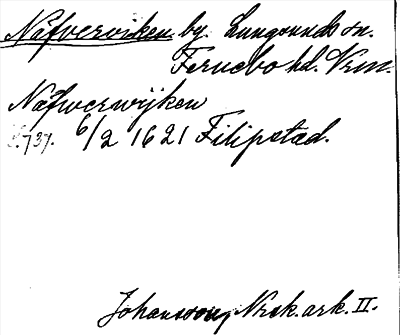 Näfverviken by. Lungsunds sn.
Fernebo hd. Vrm.
Näfwerwijken
S. 737. 6/2 1621 Filipstad.
Johansson, Nksk. ark. II.